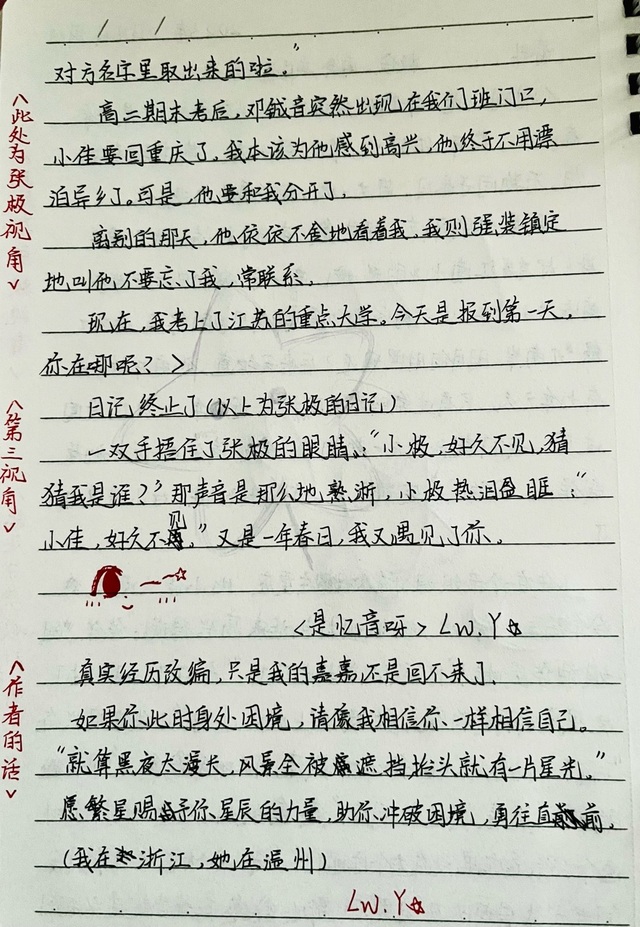 对方名字里取出来的啦。"
高二期末考后，邓钺音突然出现在我们班门口，
小佳要回重庆了，我本该为他感到高兴，他终于不用漂
泊异乡了。可是，他要和我分开了。
离别的那天，他依依不舍地看着我，我则强装镇定
地叫他不要忘了我，常联系，
现在，我考上了江苏的重点大学。今天是报到第一天，
你在哪呢？>
日记终止了(以上为张极的日记)
一双手捂住了张极的眼睛："小极，好久不见，猜
猜我是谁？"那声音是那么地熟淅，小极热泪盈眶："
小佳，好久不见。"又是一年春日，我又遇见了你。
<是忆音呀> LW.Y☆
真实经历改编，只是我的嘉嘉还是回不来了.
如果你此时身处困境，请像我相信你一样相信自己。
"就算黑夜太漫长，风景全被遮挡抬头就有一片星光。"
愿繁星赐予你星辰的力量，助你冲破困境，勇往直前.
(我在浙江，她在温州)
LW.Y☆
<此处为张极视角>
<第三视角>
<作者的话>